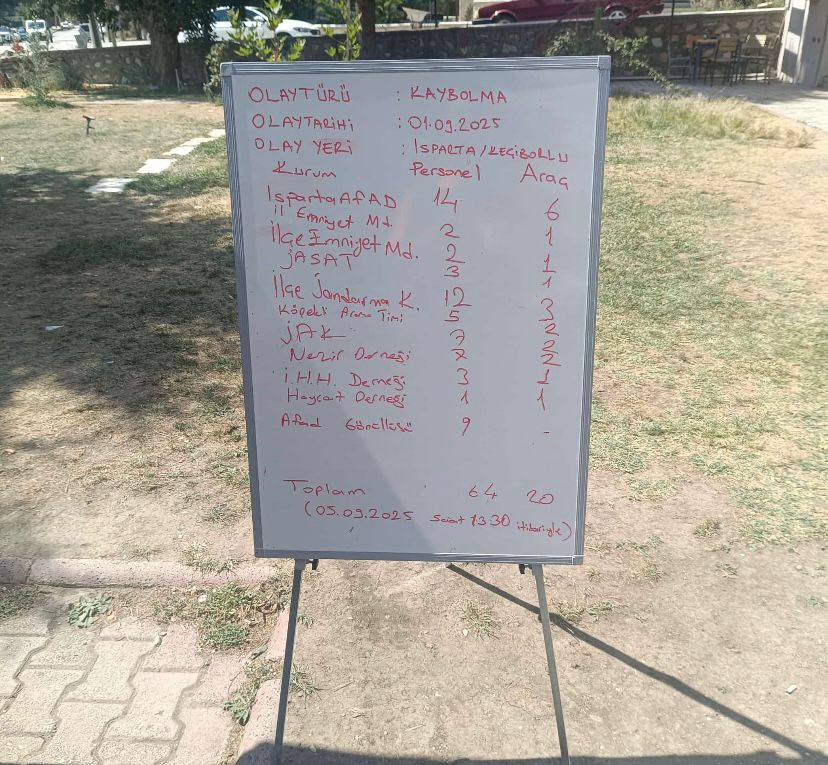 OLAYTÜRÜ : KAYBOLMA
OLAYTARİHİ : 01.09.2025
OLAY YERİ : ISPARTA/KEÇİBORLU
Kurum Personel Araç
Isparta AFAD 14 6
İl Emniyet Md. 2 1
İlçe Emniyet Md. 2 1
JASAT 3 1
İlçe Jandarma K. 12 3
Köpekli Arama Timi 5 2
JAK 7 2
Nezir Derneği 7 2
İ.H.H. Derneği 3 1
Haycat Derneği 1 1
Afad Gönüllüsü 9 -
Toplam 64 20
(05.09.2025 Saat 13 30 itibariyle)